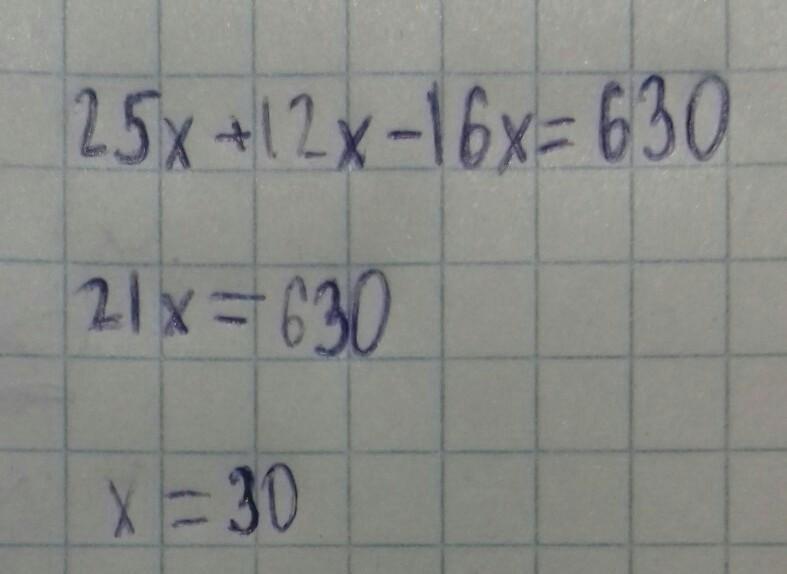 25x+12x-16x=630
21x=630
x=30